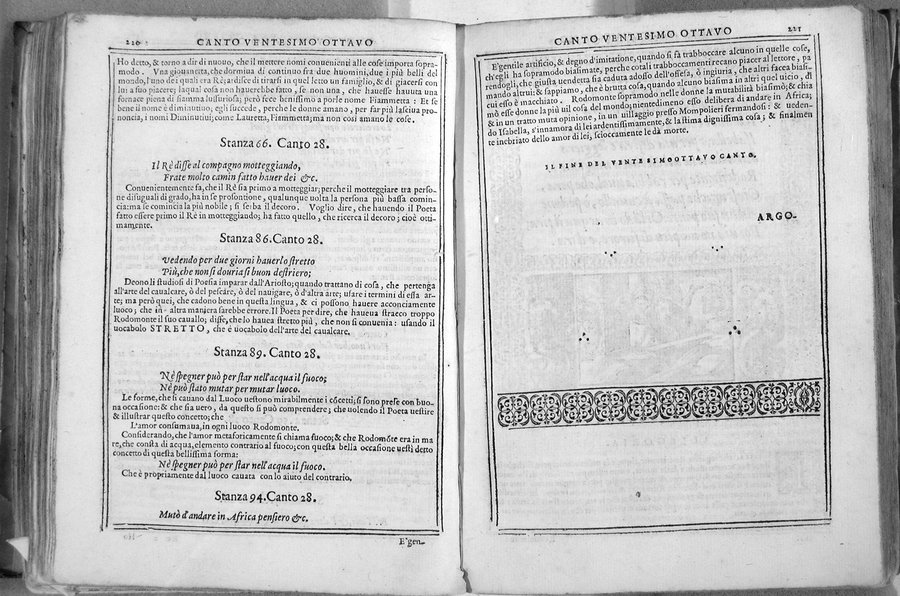 220
CANTO VENTESIMO OTTAVO
Ho detto, & torno a dir di nuouo, che il mettere nomi conuenienti alle cose importa sopra-
modo. Vna giouinetta, che dormiua di continuo fra due huomini, due i più belli del
mondo, l'uno dei quali era Rè; ardisce di tirarsi in quel letto un famiglio, & di giacersi con
lui a suo piacere; laqual cosa non hauerebbe fatto, se non una, che hauesse hauuta una
fornace piena di fiamma lussuriosa; però fece benissimo a porle nome Fiammetta: Et se
bene il nome è diminutiuo; egli succede, perche le donne amano, per far più lasciua pro-
noncia, i nomi Diminutiui; come Lauretta, Fiammetta; ma non così amano le cose.
Stanza 66. Canto 28.
Il Rè disse al compagno motteggiando,
Frate molto camin fatto hauer dei &c.
Conuenientemente fa, che il Rè sia primo a motteggiar; perche il motteggiare tra perso-
ne disuguali di grado, ha in se prosontione, qualunque uolta la persona più bassa comin-
cia; ma se comincia la più nobile; si serba il decoro. Voglio dire, che hauendo il Poeta
fatto essere primo il Rè in motteggiando; ha fatto quello, che ricerca il decoro; cioè otti-
mamente.
Stanza 86. Canto 28.
Vedendo per due giorni hauerlo stretto
Più, che non si douria si buon destriero;
Deono li studiosi di Poesia imparar dall'Ariosto; quando trattano di cosa, che pertenga
all'arte del caualcare, ò del pescare, ò del nauigare, ò d'altra arte; usare i termini di essa ar-
te; ma però quei, che cadono bene in questa lingua, & ci possono hauere acconciamente
luoco; che in altra maniera sarebbe errore. Il Poeta per dire, che haueua stracco troppo
Rodomonte il suo cauallo; disse, che lo hauea stretto più, che non si conuenia: usando il
uocabolo STRETTO, che è uocabolo dell'arte del caualcare.
Stanza 89. Canto 28.
Nè spegner può per star nell'acqua il fuoco;
Nè può stato mutar per mutar luoco.
Le forme, che si cauano dal Luoco uestono mirabilmente i cōcetti; si sono prese con buo-
na occasione: & che sia uero, da questo si può comprendere; che uolendo il Poeta uestire
& illustrar questo concetto; che
L'amor consumaua, in ogni luoco Rodomonte.
Considerando, che l'amor metaforicamente si chiama fuoco; & che Rodomōte era in ma
re, che consta di acqua, elemento contrario al fuoco; con questa bella occasione uestì detto
concetto di questa bellissima forma:
Nè spegner può per star nell'acqua il fuoco.
Che è propriamente dal luoco cauata con lo aiuto del contrario.
Stanza 94. Canto 28.
Mutò d'andare in Africa pensiero &c.
E'gen-
CANTO VENTESIMO OTTAVO
221
E'gentile artificio, & degno d'imitatione, quando si fa trabboccare alcuno in quelle cose,
ch'egli ha sopramodo biasimate, perche cotali trabboccamenti recano piacer al lettore, pa
rendogli, che giusta uendetta sia caduta adosso dell'offesa, ò ingiuria, che altri facea biasi-
mando altrui: & sappiamo, che è brutta cosa, quando alcuno biasima in altri quel uicio, di
cui esso è macchiato. Rodomonte sopramodo nelle donne la mutabilità biasimò; & chia
mò esse donne la più uil cosa del mondo; nientedimeno esso delibera di andare in Africa;
& in un tratto muta opinione, in un uillaggio presso Mompolieri fermandosi: & ueden-
do Isabella, s'innamora di lei ardentissimamente, & la stima dignissima cosa; & finalmen
te inebriato dello amor di lei, scioccamente le dà morte.
IL FINE DEL VENTESIMOOTTAVO CANTO.
ARGO-